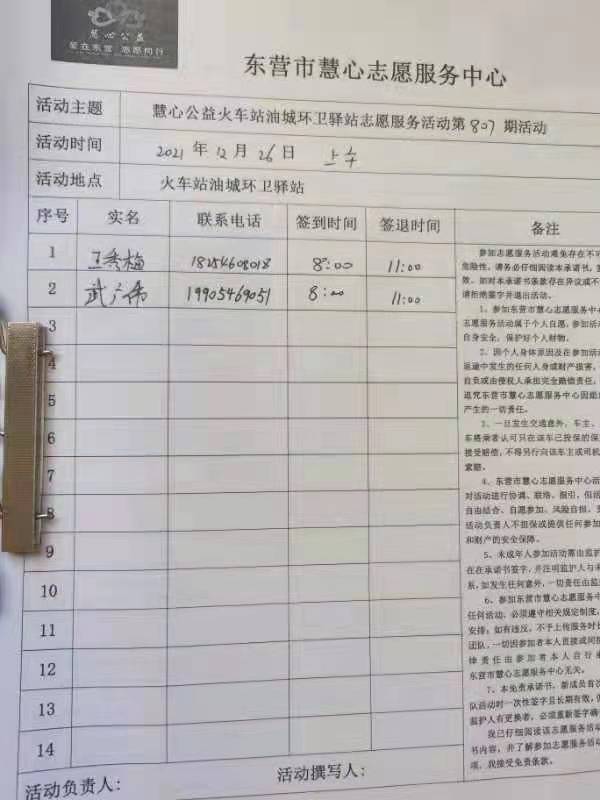 慧心公益
爱在东营 志愿同行
东营市慧心志愿服务中心
活动主题 慧心公益火车站油城环卫驿站志愿服务活动第807期活动
活动时间 2021年12月26日 上午
活动地点 火车站油城环卫驿站
序号 实名 联系电话 签到时间 签退时间 备注
1 王秀梅 18254608018 8:00 11:00
2 武广伟 19905469051 8:00 11:00
3
4
5
6
7
8
9
10
11
12
13
14
参加志愿服务活动难免存在不可
危险性，请务必仔细阅读本承诺书，
效，如对本承诺书条款存在异议或不
请拒绝签字并退出活动。
1、参加东营市慧心志愿服务中
志愿服务活动属于个人自愿，参加活动
自身安全，保护好个人财物。
2、因个人身体原因及在参加活动
返途中发生的任何人身或财产损害，
自负或由侵权人承担完全赔偿责任，
追究东营市慧心志愿服务中心因组
产生的一切责任。
3、一旦发生交通意外，车主、
车搭乘者认可只在该车已投保的保
接受赔偿，不得另行向该车主或司机
索赔。
4、东营市慧心志愿服务中心活
对活动进行协调、联络、指引，但活
自由结合、自愿参加、风险自担，
活动负责人不担保或提供任何参加
和财产的安全保障。
5、未成年人参加活动需由监护
在在承诺书签字，并注明监护人与
系，如发生任何意外，一切责任由监
6、参加东营市慧心志愿服务中
任何活动，必须遵守相关规定制度，
安排；如有违反，不予上传服务时长
团队，一切因参加者本人直接或间接
律责任由参加者本人自行承
东营市慧心志愿服务中心无关。
7、本免责承诺书，新成员首次
队活动时一次性签字且长期有效，
监护人有更换者，必须重新签字确
我已仔细阅读该志愿服务活动
书内容，并了解参加志愿服务活动
项，我接受免责条款。
活动负责人： 活动撰写人：